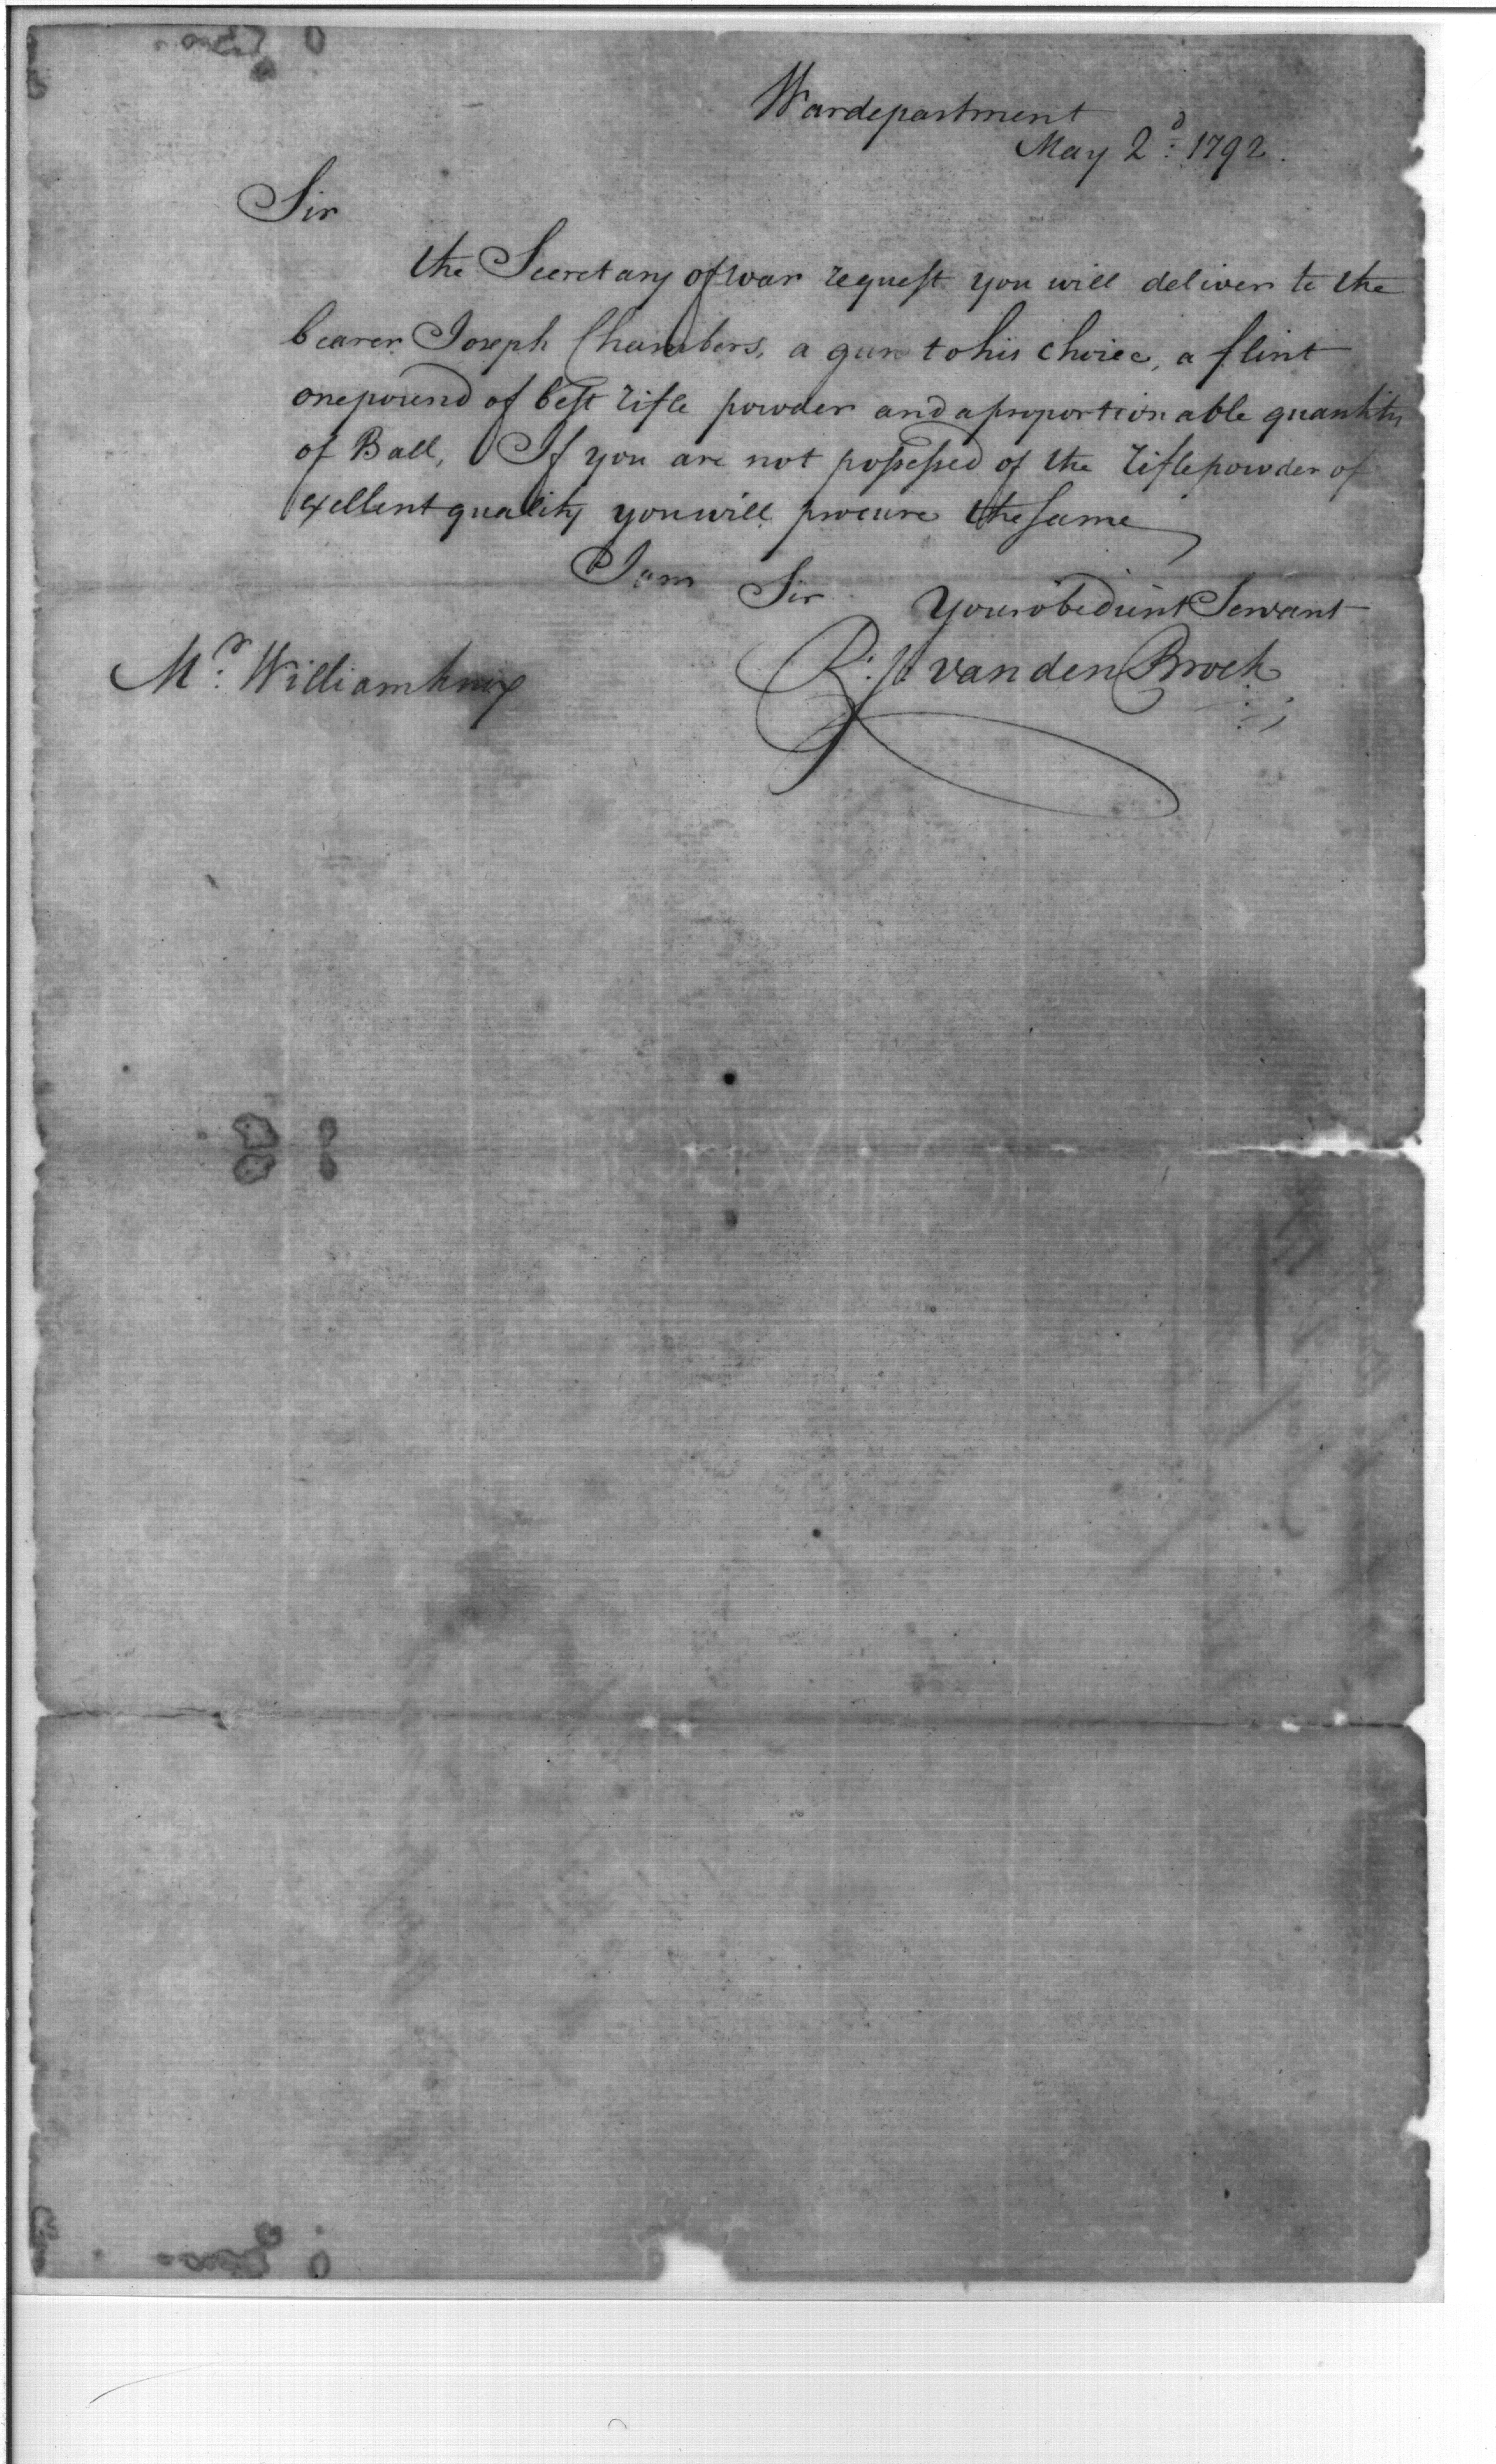 Wardepartment
May 2d. 1792.
Sir
the Secretary of war request you will deliver to the
bearer Joseph Chambers, a gun to his choice, a flint
one pound of best rifle powder and a proportionable quantity
of Ball, If you are not possessed of the rifle powder of
exellent quality you will procure the same
I am Sir Your obedient Servant
Mr. William Knox R: J: van den Broek